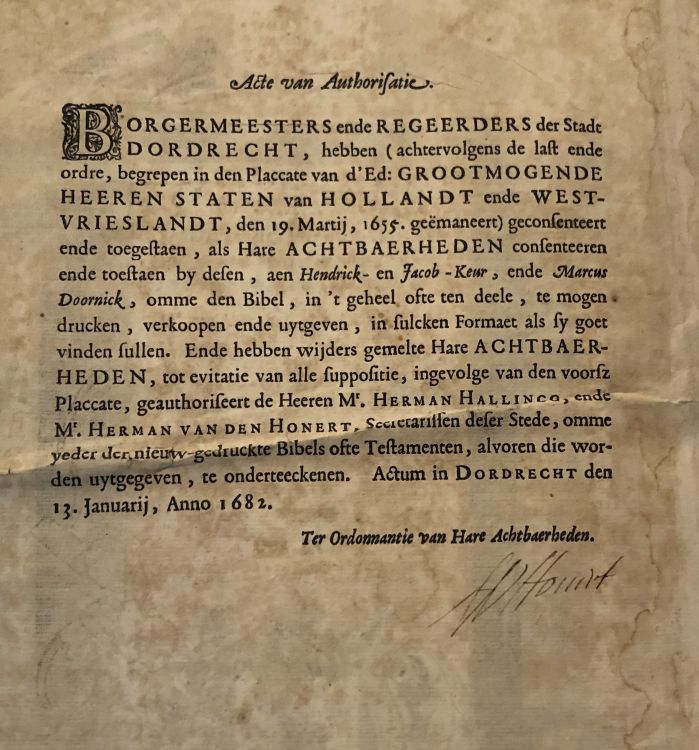 Acte van Authoriſatie.
BORGERMEESTERS ende REGEERDERS der Stadt
DORDRECHT, hebben (achtervolgens de laſt ende
ordre, begrepen in den Placcate van d'Ed: GROOTMOGENDE
HEEREN STATEN van HOLLANDT ende WEST-
VRIESLANDT, den 19. Martij, 1655. geëmaneert) geconſenteert
ende toegeſtaen, als Hare ACHTBAERHEDEN conſenteeren
ende toeſtaen by deſen, aen Hendrick- en Jacob-Keur, ende Marcus
Doornick, omme den Bibel, in 't geheel ofte ten deele, te mogen
drucken, verkoopen ende uytgeven, in ſulcken Formaet als ſy goet
vinden ſullen. Ende hebben wijders gemelte Hare ACHTBAER-
HEDEN, tot evitatie van alle ſuppoſitie, ingevolge van den voorſz
Placcate, geauthoriſeert de Heeren Mr. HERMAN HALLINCQ, ende
Mr. HERMAN VAN DEN HONERT, Secretariſſen deſer Stede, omme
yeder der nieuw-gedruckte Bibels ofte Teſtamenten, alvoren die wor-
den uytgegeven, te onderteeckenen. Actum in DORDRECHT den
13. Januarij, Anno 1682.
Ter Ordonnantie van Hare Achtbaerheden.